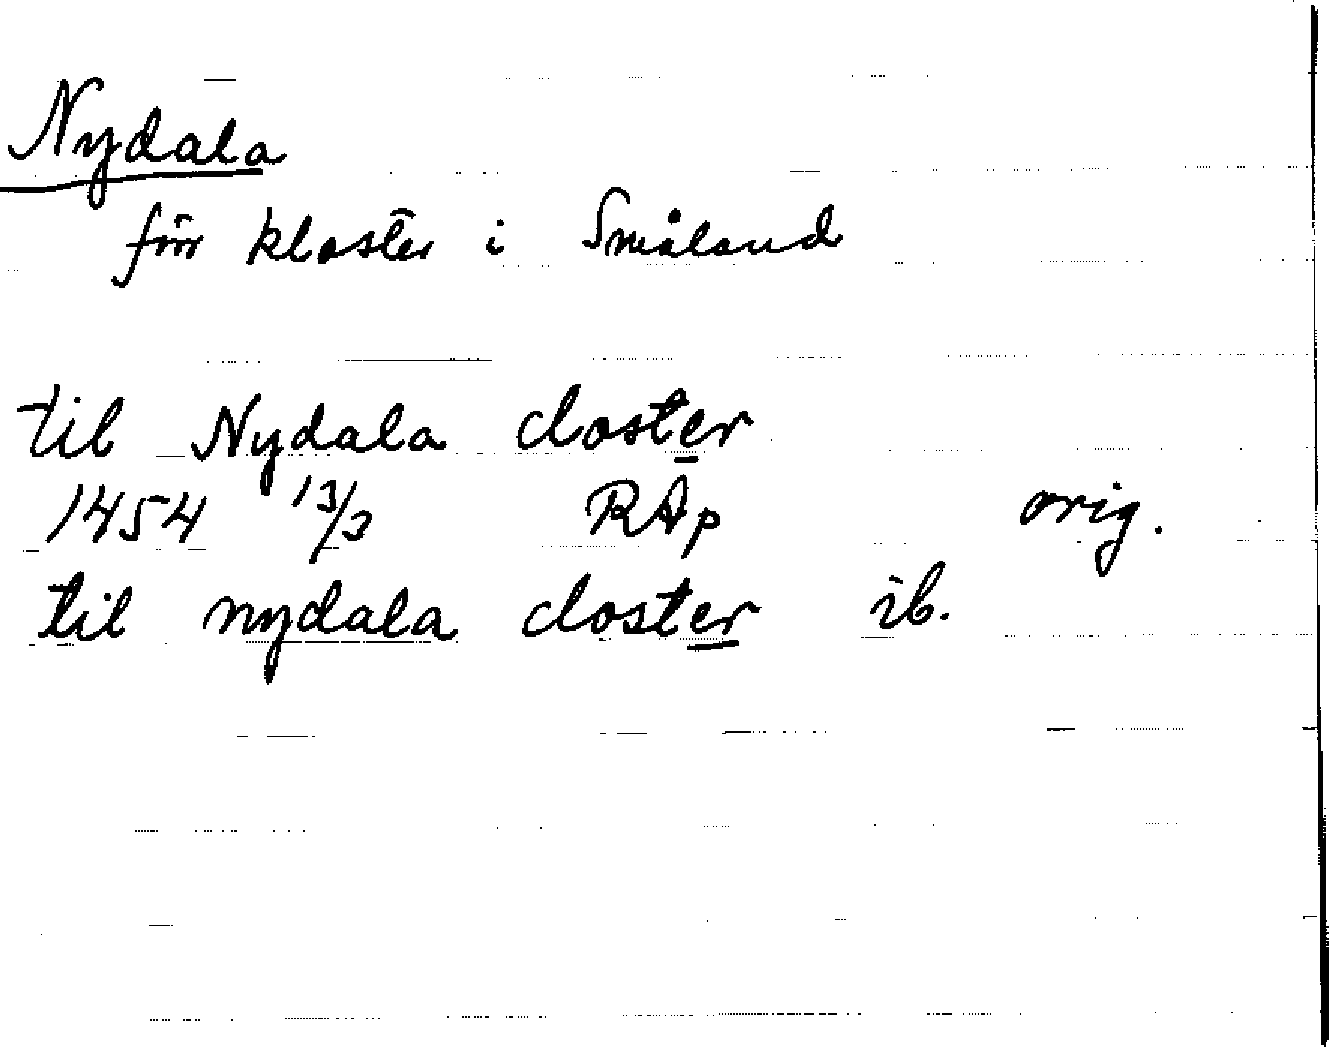 Nydala
förr kloster i Småland
til Nydala closter
1454 13/3 RAp orig.
til nydala closter ib.